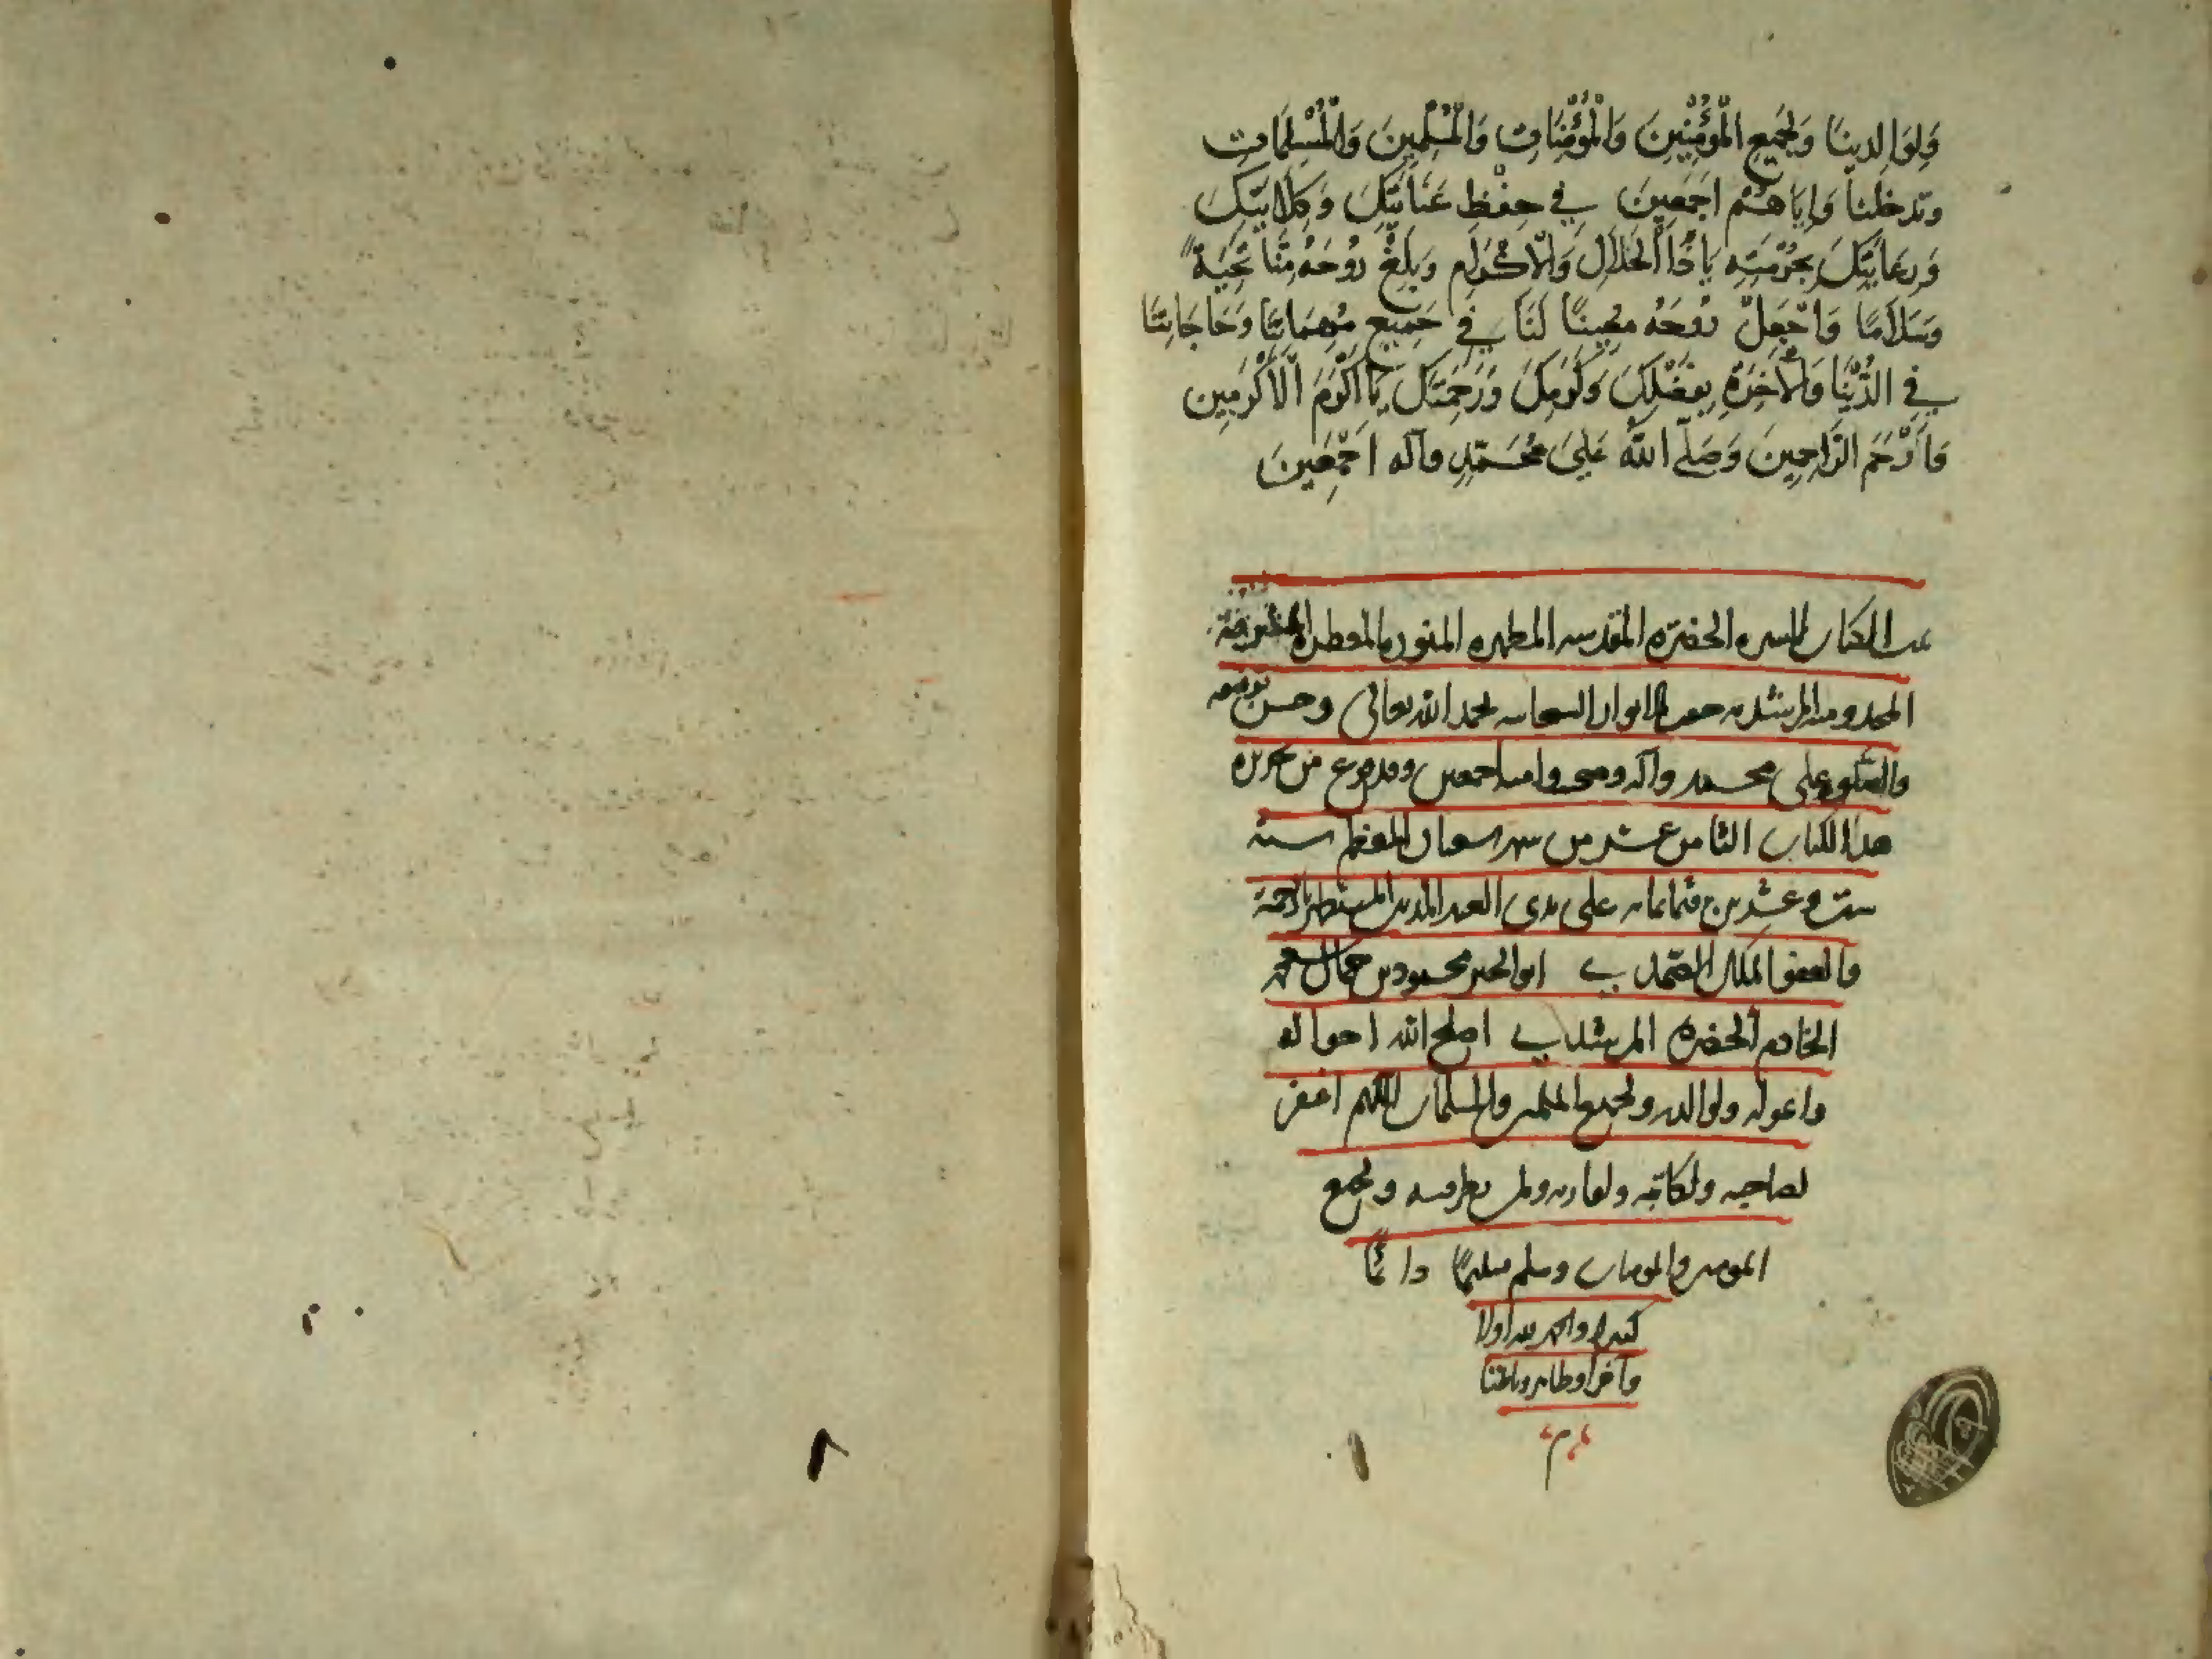 وَلِوَالِدِينَا وَلِجَمِيعِ الْمُؤْمِنِينَ وَالْمُؤْمِنَاتِ وَالْمُسْلِمِينَ وَالْمُسْلِمَاتِ
وتدخلنا وَإِيَاهُمْ اجمَعِينَ في حِفْظِ عَنَايَتِكَ وَكِلَايَتِكَ
وَرِعَايَتِكَ بِحُرْمَتِهِ يَا ذَا الْجَلَالِ وَالْاكْرَامِ وَبَلِّغْ رُوحَهُ مِنَّا تَحِيَةً
وَسَلَامًا وَاجْعَلْ رُوحَهُ مُعِينًا لَنَا فِي جَمِيعِ مُهِمَاتِنَا وَحَاجَاتِنَا
فِي الدُّنْيَا وَالْآخِرَةِ بِفَضْلِكَ وَكَرَمِكَ وَرَحْمَتِكَ يَا اَكْرَمَ الْاَكْرَمِين
وَاَرْحَمَ الرَّاحِمِينَ وَصَلَّى اللهُ عَلَى مُحَمَّدٍ وآله اجْمَعِينَ
الكتاب الحضرة المقدسه المطهره المنوره المعطره
المرشديه بحمد الله تعالى وحسن توفيقه
والصلوة على محمد وآله وصحبه اجمعين وقد فرغ من تحريره
هذا الكتاب الثامن عشر من شهر شعبان المعظم سنه
ست وعشرين وثمانمائه على يدى العبد المذنب المستظهر بالرحمة
والعفو الملك الصمدي ابو الخير محمود بن جمال محمد
الخادم الحضرة المرشدي اصلح الله احواله
ولوالديه ولجميع المسلمين والمسلمات اللهم اغفر
لصاحبه ولكاتبه ولقاريه ولمن نظر فيه ولجميع
المومنين والمومنات وسلم تسليمًا دائمًا
كثيرا والحمد لله اولا
وآخرا وظاهرا وباطنا
م